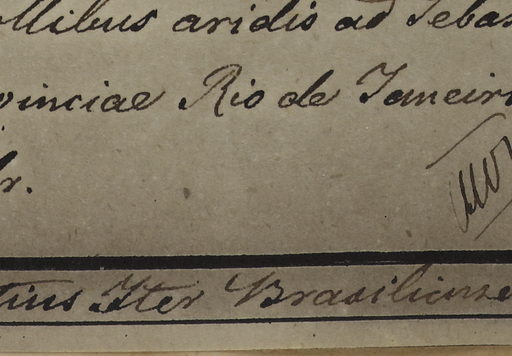 ollibus aridis ad Sebas
vinciae Rio de Janeiro
br.
tius Iter Brasiliense